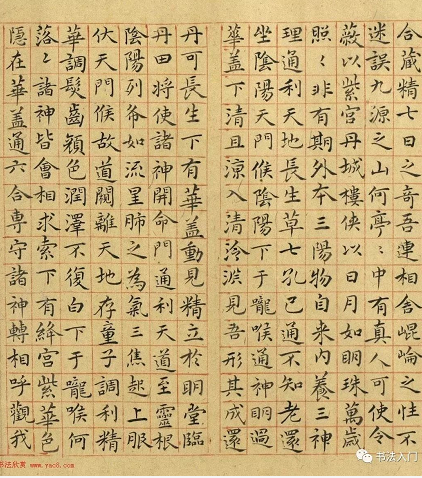 合藏精七日之奇吾連相舍崐崘之性不
迷誤九源之山何亭〻中有真人可使令
蔽以紫宮丹城樓俠以日月如明珠萬歲
照〻非有期外本三陽物自来内養三神
理通利天地長生草七孔已通不知老還
坐陰陽天門候陰陽下于嚨喉通神明過
華盖下清且涼入清泠淵見吾形其成還
丹可長生下有華盖動見精立於明堂臨
丹田將使諸神開命門通利天道至靈根
陰陽列如流星肺之為氣三焦起上服
伏天門候故道闚離天地存童子調利精
華調髮齒顏色潤澤不復白下于嚨喉何
落〻諸神皆會相求索下有絳宮紫華色
隱在華盖通六合專守諸神轉相呼觀我
书法欣赏 www.yac8.com
书法入门